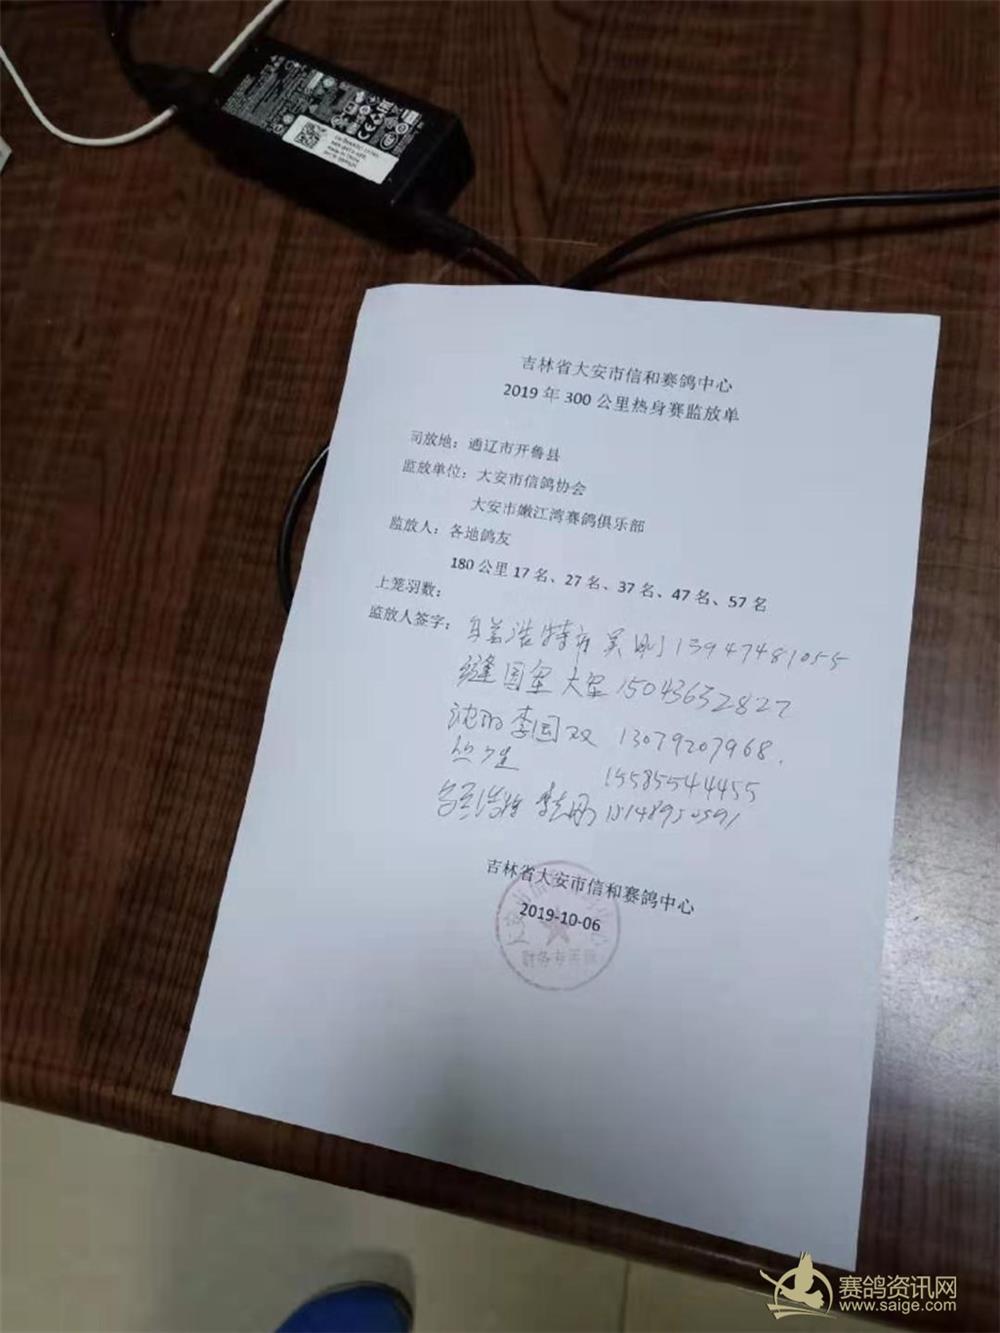 吉林省大安市信和赛鸽中心
2019 年 300 公里热身赛监放单
司放地：通辽市开鲁县
监放单位：大安市信鸽协会
大安市嫩江湾赛鸽俱乐部
监放人：各地鸽友
180 公里 17 名、27 名、37 名、47 名、57 名
上笼羽数：
监放人签字：乌兰浩特市 吴刚 13947481055
缝国军 大军 15043632827
沈阳 李国双 13079207968.
15585544455
李志刚 15148950591
吉林省大安市信和赛鸽中心
2019-10-06
财务专用章
赛鸽资讯网
www.saige.com